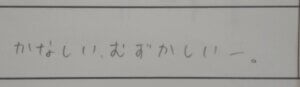 かなしい、むずかしいー。